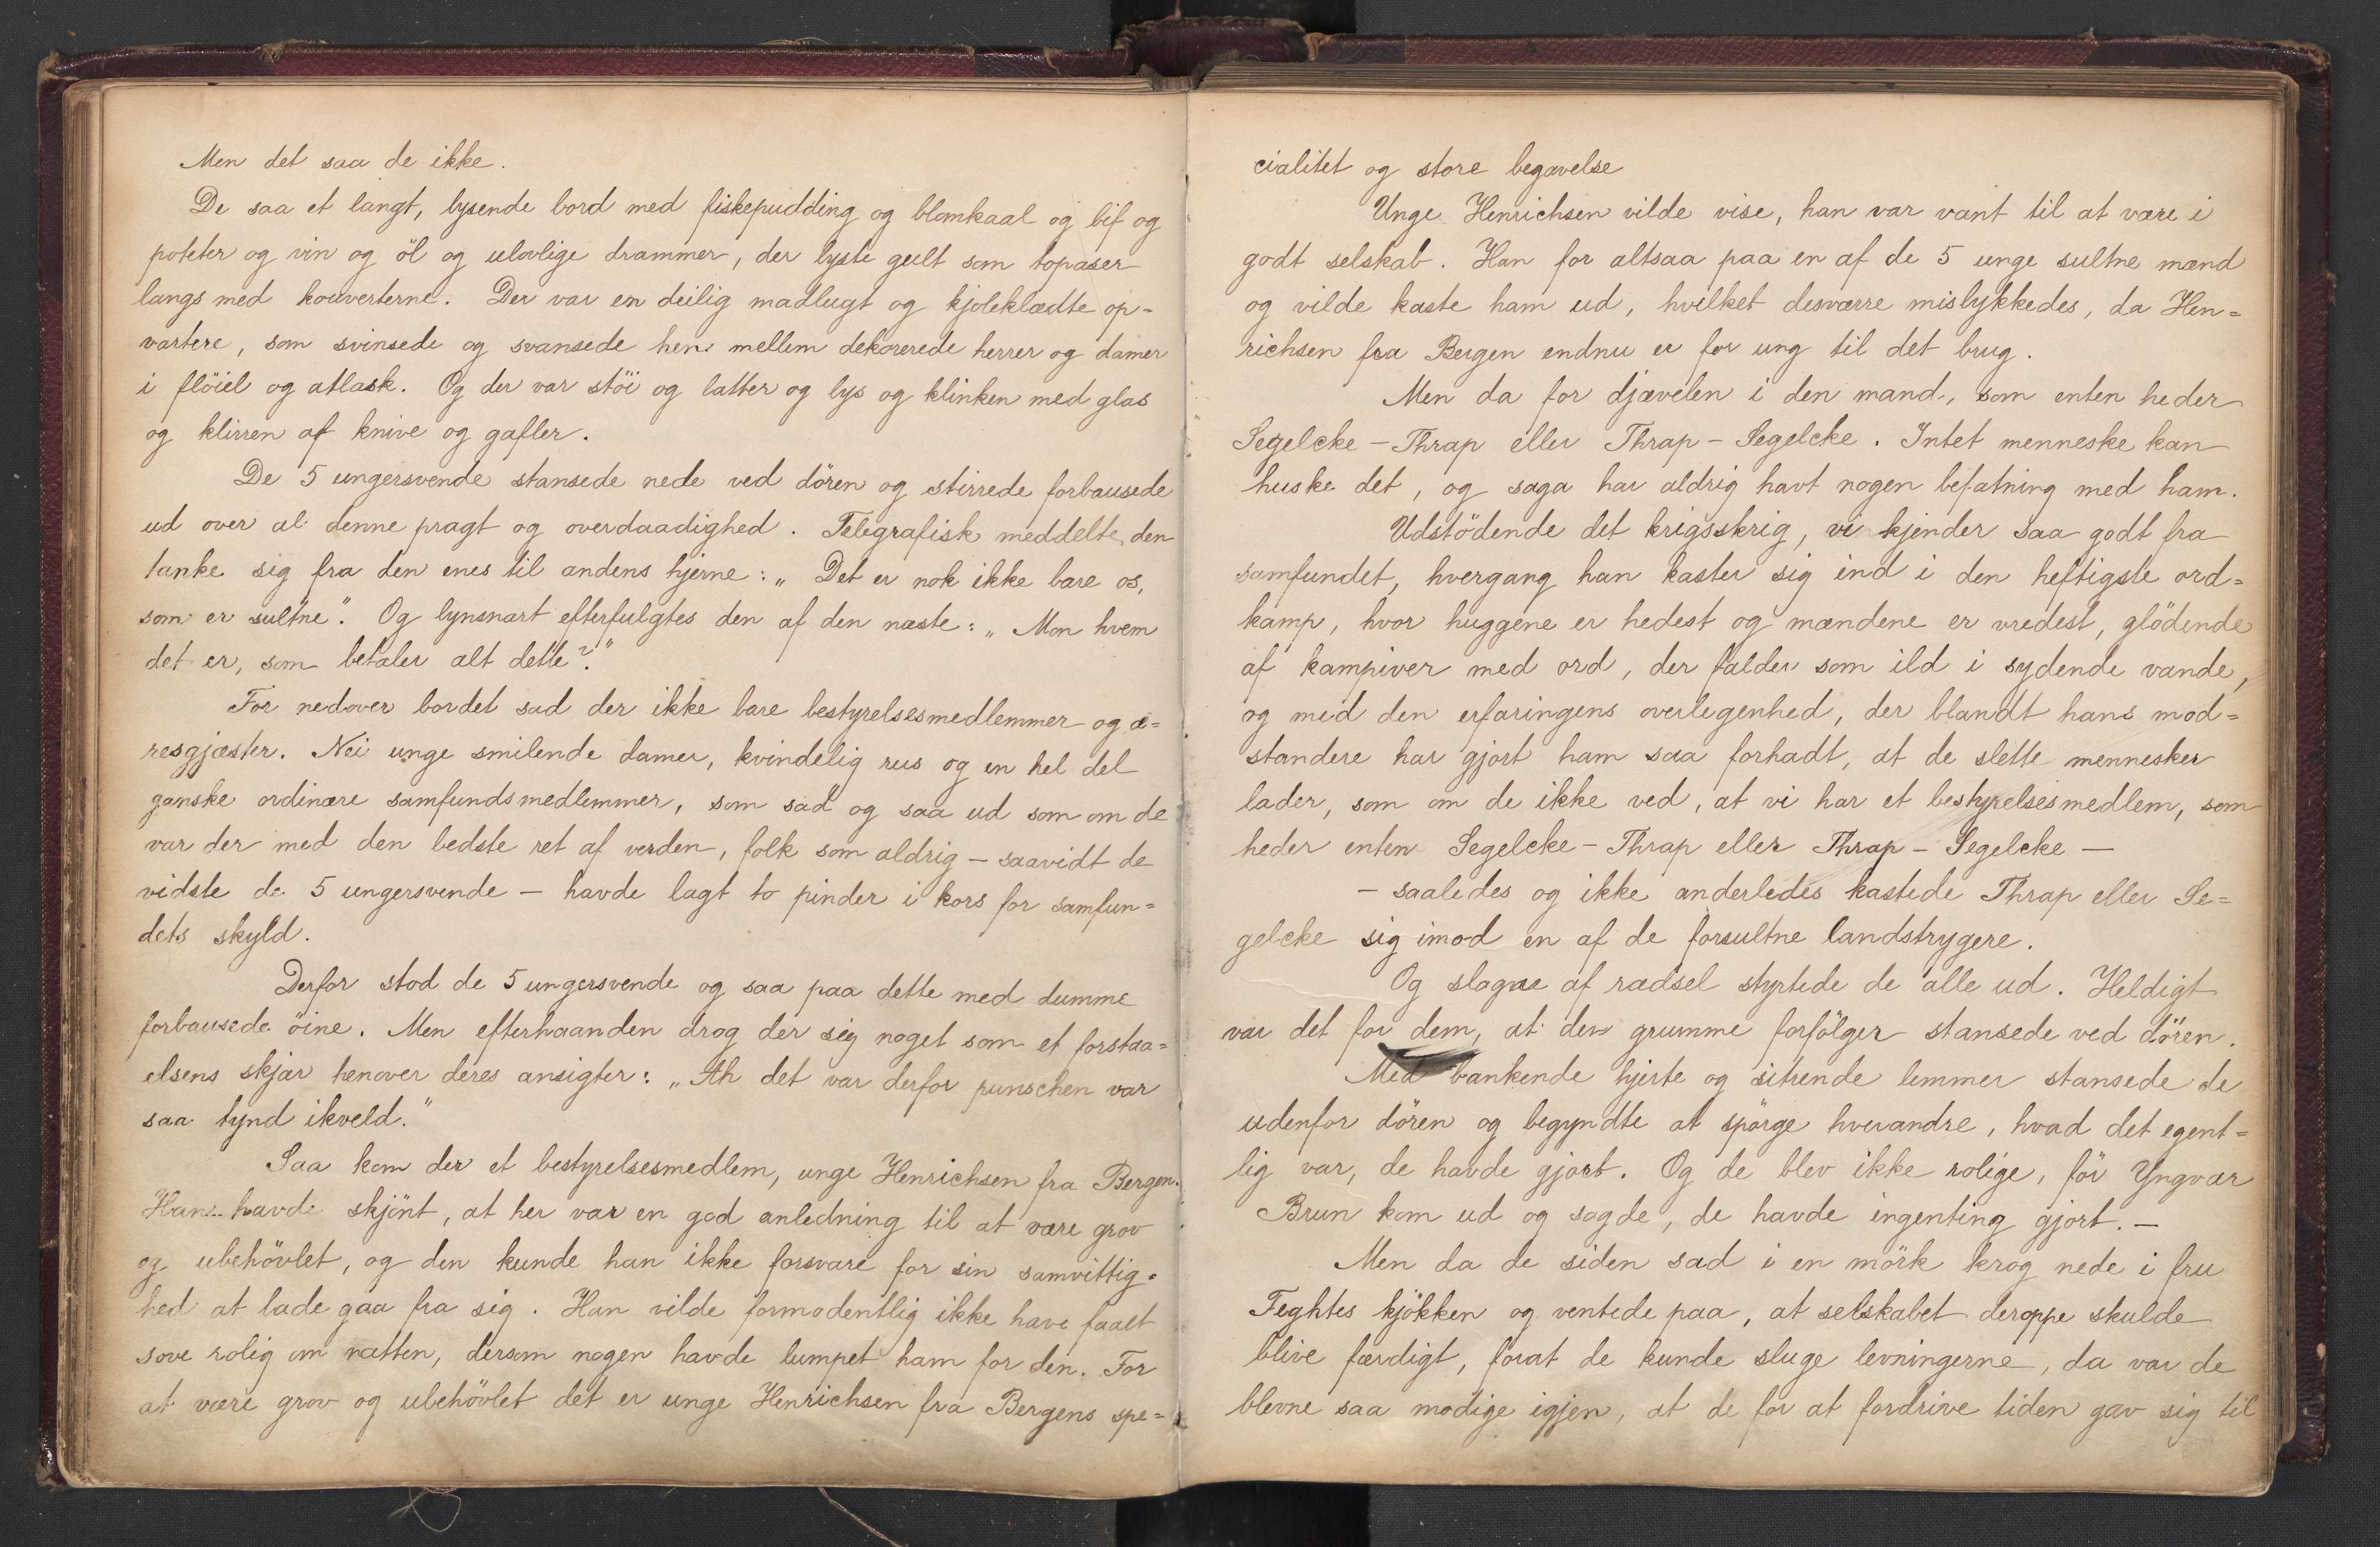 Men det saa de ikke.
De saa et langt, lysende bord med fiskepudding og blomkaal og bif og
poteter og vin og öl og ulovlige drammer, der lyste gult som topaser
langs med kouverterne. Der var en deilig madlugt og kjoleklædte op=
vartere, som svinsede og svansede hen mellem dekorerede herrer og damer
i flöiel og atlask. Og der var stöi og latter og lys og klinken med glas
og klirren af knive og gafler.
De 5 ungersvende stansede nede ved dören og stirrede forbausede
ud over al denne pragt og overdaadighed. Telegrafisk meddelte den
tanke sig fra den enes til andens hjerne: „Det er nok ikke bare os,
som er sultne." Og lynsnart efterfulgtes den af den næste: „Mon hvem
det er, som betaler alt dette?"
For nedover bordet sad der ikke bare bestyrelsesmedlemmer og æ=
resgjæster. Nei unge smilende damer, kvindelig rus og en hel del
ganske ordinære samfundsmedlemmer, som sad og saa ud som om de
var der med den bedste ret af verden, folk som aldrig - saavidt de
vidste de 5 ungersvende - havde lagt to pinder i kors for samfun=
dets skyld.
Derfor stod de 5 ungersvende og saa paa dette med dumme
forbausede öine. Men efterhaanden drog der sig noget som et forstaa=
elsens skjær henover deres ansigter: „Ah det var derfor punschen var
saa tynd ikveld."
Saa kom der et bestyrelsesmedlem, unge Henrichsen fra Bergen.
Han havde skjönt, at her var en god anledning til at være grov
og ubehövlet, og den kunde han ikke forsvare for sin samvittig=
hed at lade gaa fra sig. Han vilde formodentlig ikke have faaet
sove rolig om natten, dersom nogen havde lumpet ham for den. For
at være grov og ubehövlet det er unge Henrichsen fra Bergens spe=
cialitet og store begavelse
Unge Henrichsen vilde vise, han var vant til at være i
godt selskab. Han for altsaa paa en af de 5 unge sultne mænd
og vilde kaste ham ud, hvilket desværre mislykkedes, da Hen=
richsen fra Bergen endnu er for ung til det brug.
Men da for djævelen i den mand, som enten heder
Segelcke - Thrap eller Thrap - Segelcke. Intet menneske kan
huske det, og saga har aldrig havt nogen befatning med ham.
Udstödende det krigsskrig, vi kjender saa godt fra
samfundet, hvergang han kaster sig ind i den heftigste ord=
kamp, hvor huggene er hedest og mændene er vredest, glödende
af kampiver med ord, der falder som ild i sydende vande,
og med den erfaringens overlegenhed, der blandt hans mod=
standere har gjort ham saa forhadt, at de slette mennesker
lader, som om de ikke ved, at vi har et bestyrelsesmedlem, som
heder enten Segelcke - Thrap eller Thrap - Segelcke —
- saaledes og ikke anderledes kastede Thrap eller Se=
gelcke sig imod en af de forsultne landstrygere.
Og slagne af rædsel styrtede de alle ud. Heldigt
var det for dem, at den grumme forfölger stansede ved dören.
Med bankende hjerte og sitrende lemmer stansede de
udenfor dören og begyndte at spörge hverandre, hvad det egent=
lig var, de havde gjort. Og de blev ikke rolige, för Yngvar
Brun kom ud og sagde, de havde ingenting gjort. —
Men da de siden sad i en mörk krog nede i fru
Feghtes kjökken og ventede paa, at selskabet deroppe skulde
blive færdigt, forat de kunde sluge levningerne, da var de
blevne saa modige igjen, at de for at fordrive tiden gav sig til